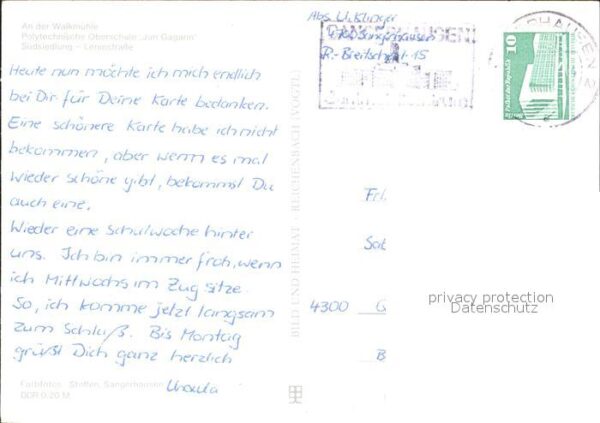 An der Walkmühle
Polytechnische Oberschule "Juri Gagarin"
Südsiedlung - Leninstraße
Heute nun möchte ich mich endlich
bei Dir für Deine Karte bedanken.
Eine schönere Karte habe ich nicht
bekommen, aber wenn es mal
wieder schöne gibt, bekommst Du
auch eine.
Wieder eine Schulwoche hinter
uns. Ich bin immer froh, wenn
ich Mittwochs im Zug sitze.
So, ich komme jetzt langsam
zum Schluß. Bis Montag
grüßt Dich ganz herzlich
Ursula
Farbfotos: Steffen, Sangerhausen
DDR 0,20 M
BILD UND HEIMAT REICHENBACH (VOGTL)
Abs. U. Klinger
Sangerhausen
R.-Breitscheid-
15
10
Frl.
4300
privacy protection
Datenschutz